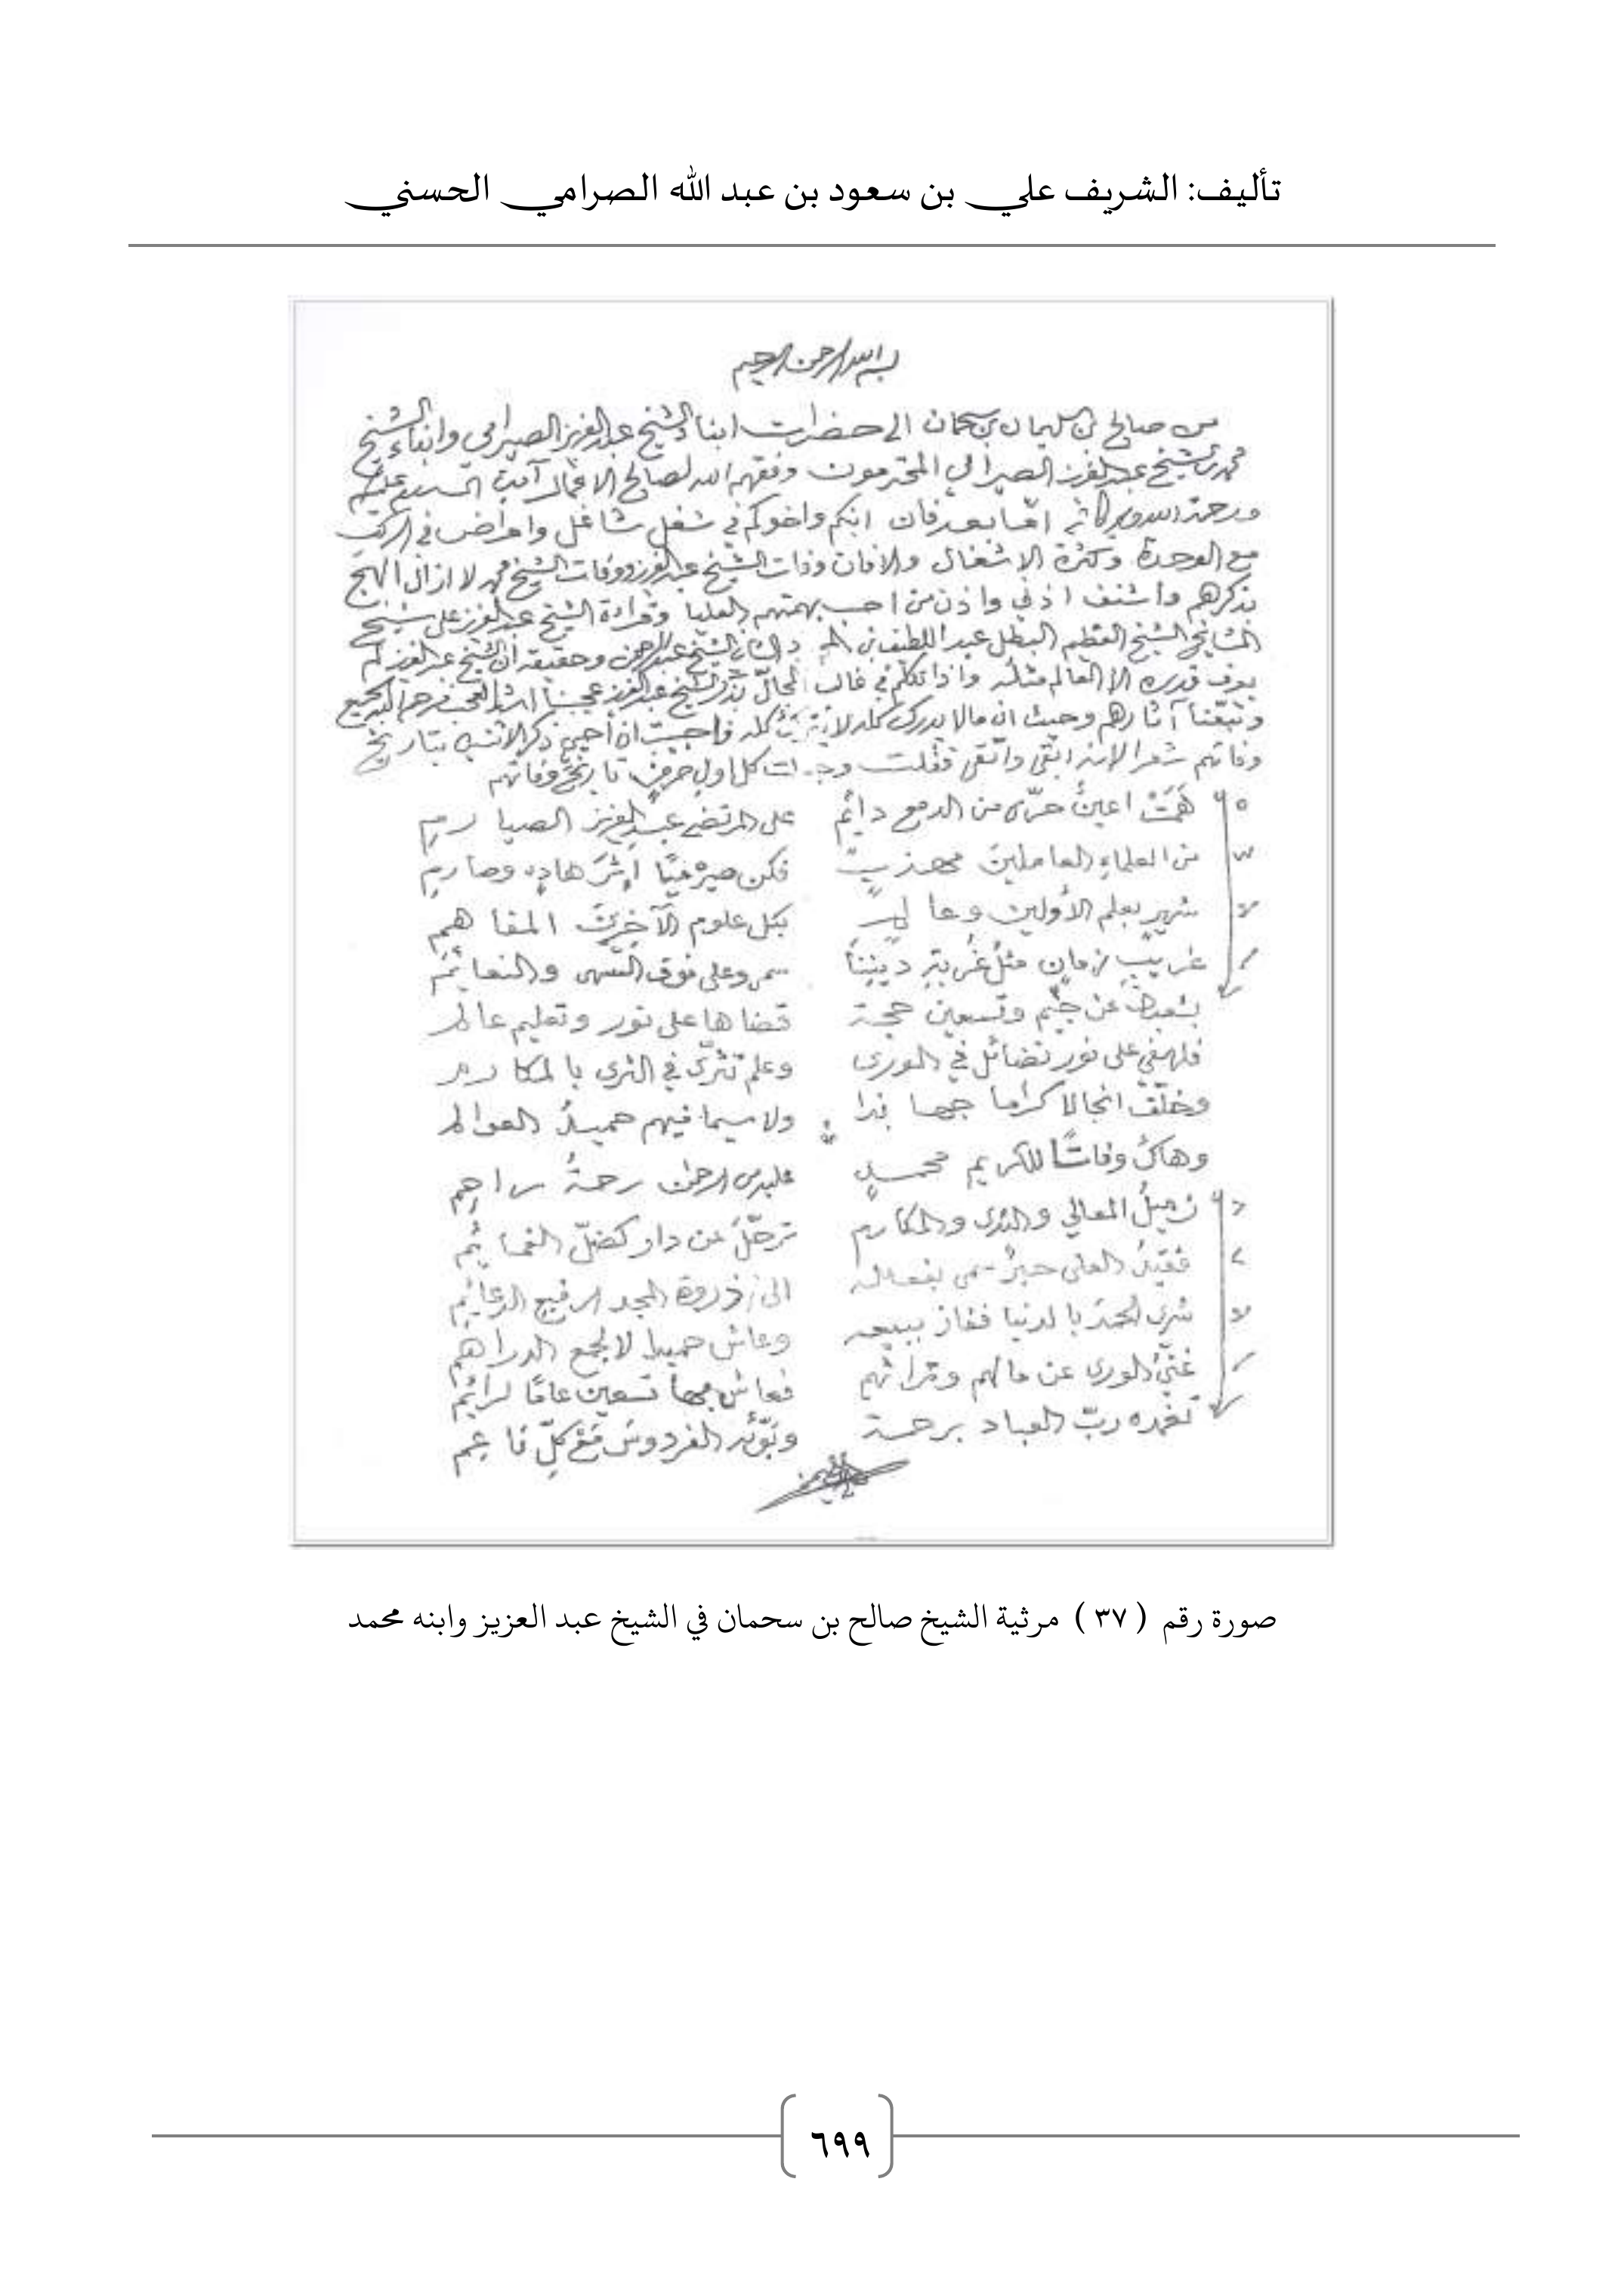 تأليف: الشريف علي بن سعود بن عبد الله الصرامي الحسني
بسم الله الرحمن الرحيم
من صالح بن سليمان بن سحمان الى حضرات ابناء الشيخ عبد العزيز الصيرامي وابناء الشيخ
محمد بن الشيخ عبد العزيز الصيرامي المحترمون وفقهم الله لصالح الاعمال آمين السلام عليكم
ورحمة الله وبركاته امّا بعد فان ابيكم واخوكم في شغل شاغل وامراض في الركب
مع الوحدة وكثرة الاشغال والافان وفات الشيخ عبد العزيز ووفات الشيخ محمد لا ازال الهج
بذكرهم واشنف اذني واذن من احب بهمتهم العليا وقراءة الشيخ عبد العزيز على شيخ
المشايخ الشيخ العظيم البطل عبد اللطيف بن الشيخ عبد الرحمن وحقيقة ان الشيخ عبد العزيز لم
يعرف قدره الا العالم مثله واذا تكلم في غالب المجال
وتبعنا آثارهم وحيث ان مالا يدرك كله لا يترك كله فاحببت ان أحيي ذكر الاثنين بتاريخ
وفاتهم شعرا لانه ابقى واتقى فقلت وجعلت كل اول حرف تاريخ وفاتهم
٥ هَمَتْ اعينٌ حرّى من الدمع دائم على المرتضى عبد العزيز الصيارم
من العلماء العاملين مهذب فكن صيرفيًا إثر هادٍ وصارم
شهير بعلم الأولين وعالم بكل علوم الآخرين المفاهم
غريب زمان مثل غربة ديننا سمى وعلى فوق السهى والنعائم
وتسعين حجة قضاها على نور وتعليم عالم
فلهفي على نور تضائل في الورى وعلم تثرّى في الثرى بالمكارم
وخلّف انجالا كراما جهابذا ولا سيما فيهم حميدُ العوالم
وهاك وفاتًا للكريم محمدٍ عليه من الرحمن رحمةُ راحم
زميلُ المعالي والندى والمكارم ترحّلَ عن دار كضلّ الغمائم
فقيدُ العلى حبرٌ سمى بفعاله الى ذروة المجد الرفيع الدعائم
شرى الحمد بالدنيا ففاز ببيعه وعاش حميدا لا لجمع الدراهم
غنيُّ الورى عن مالهم وتراثهم فعاش بها تسعين عامًا لرائم
تغمده ربّ العباد برحمة وبوّئه الفردوس مَعْ كلّ قائم
صورة رقم ( ٣٧ ) مرثية الشيخ صالح بن سحمان في الشيخ عبد العزيز وابنه محمد
٦٩٩